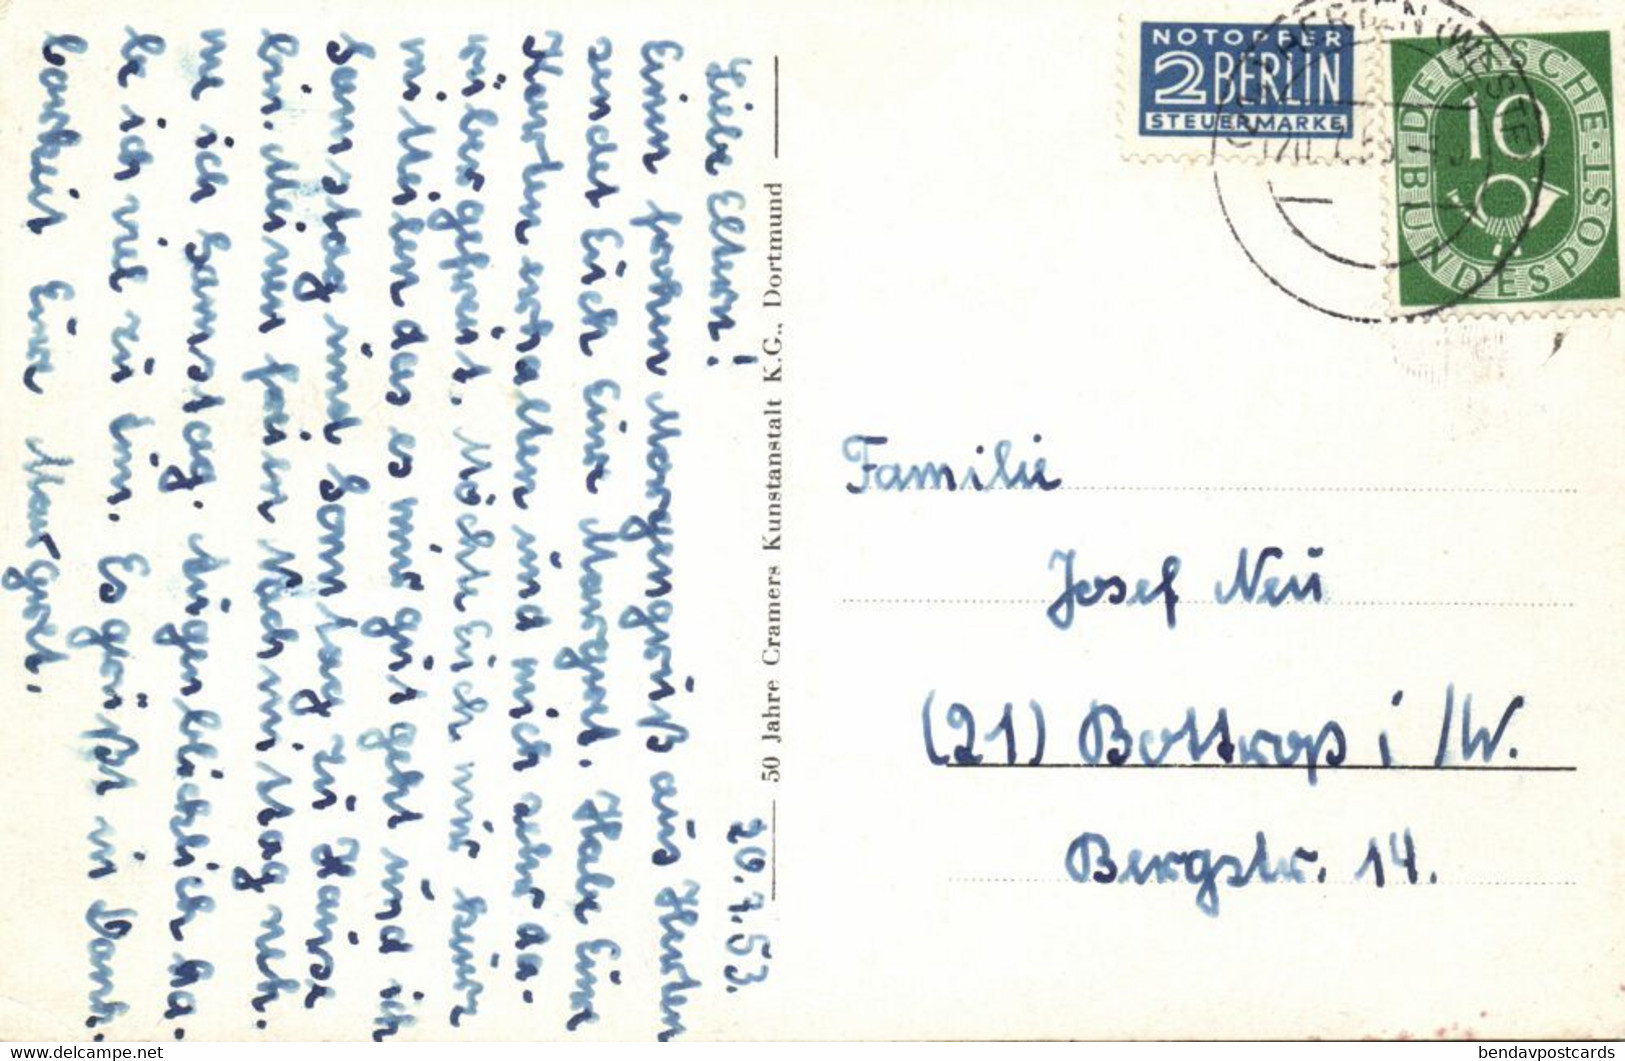 20.7.53.
Liebe Eltern!
Einen frohen Morgengruß aus Herten
sendet Euch Eure Margret. Habe Eure
Karten erhalten und mich sehr da-
rüber gefreut. Möchte Euch nur kurz
mitteilen das es mir gut geht und ich
Samstag und Sonntag zu Hause
bin. Meinen freien Nachmittag neh-
me ich Samstag. Augenblicklich ha-
be ich viel zu tun. Es grüßt in Dank-
barkeit Eure Margret.
50 Jahre Cramers Kunstanstalt K.G., Dortmund
NOTOPFER
2 BERLIN
STEUERMARKE
DEUTSCHE BUNDESPOST
10
HERTEN (WESTF
Familie
Josef Neu
(21) Bottrop i/W.
Bergstr. 14.
www.delcampe.net
bendavpostcards